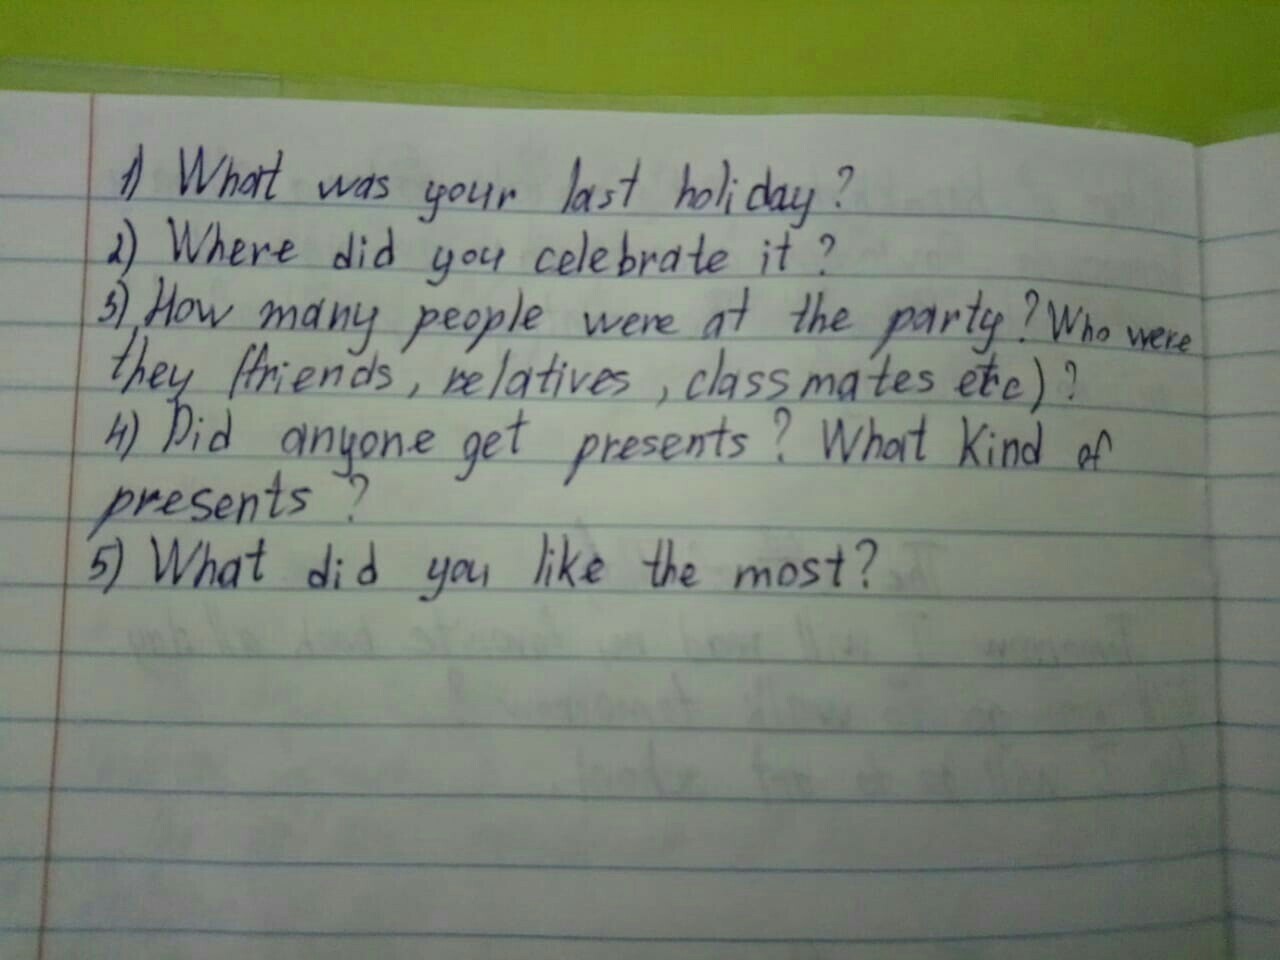 1) What was your last holiday?
2) Where did you celebrate it?
3) How many people were at the party? Who were
they (friends, relatives, classmates etc)?
4) Did anyone get presents? What kind of
presents?
5) What did you like the most?